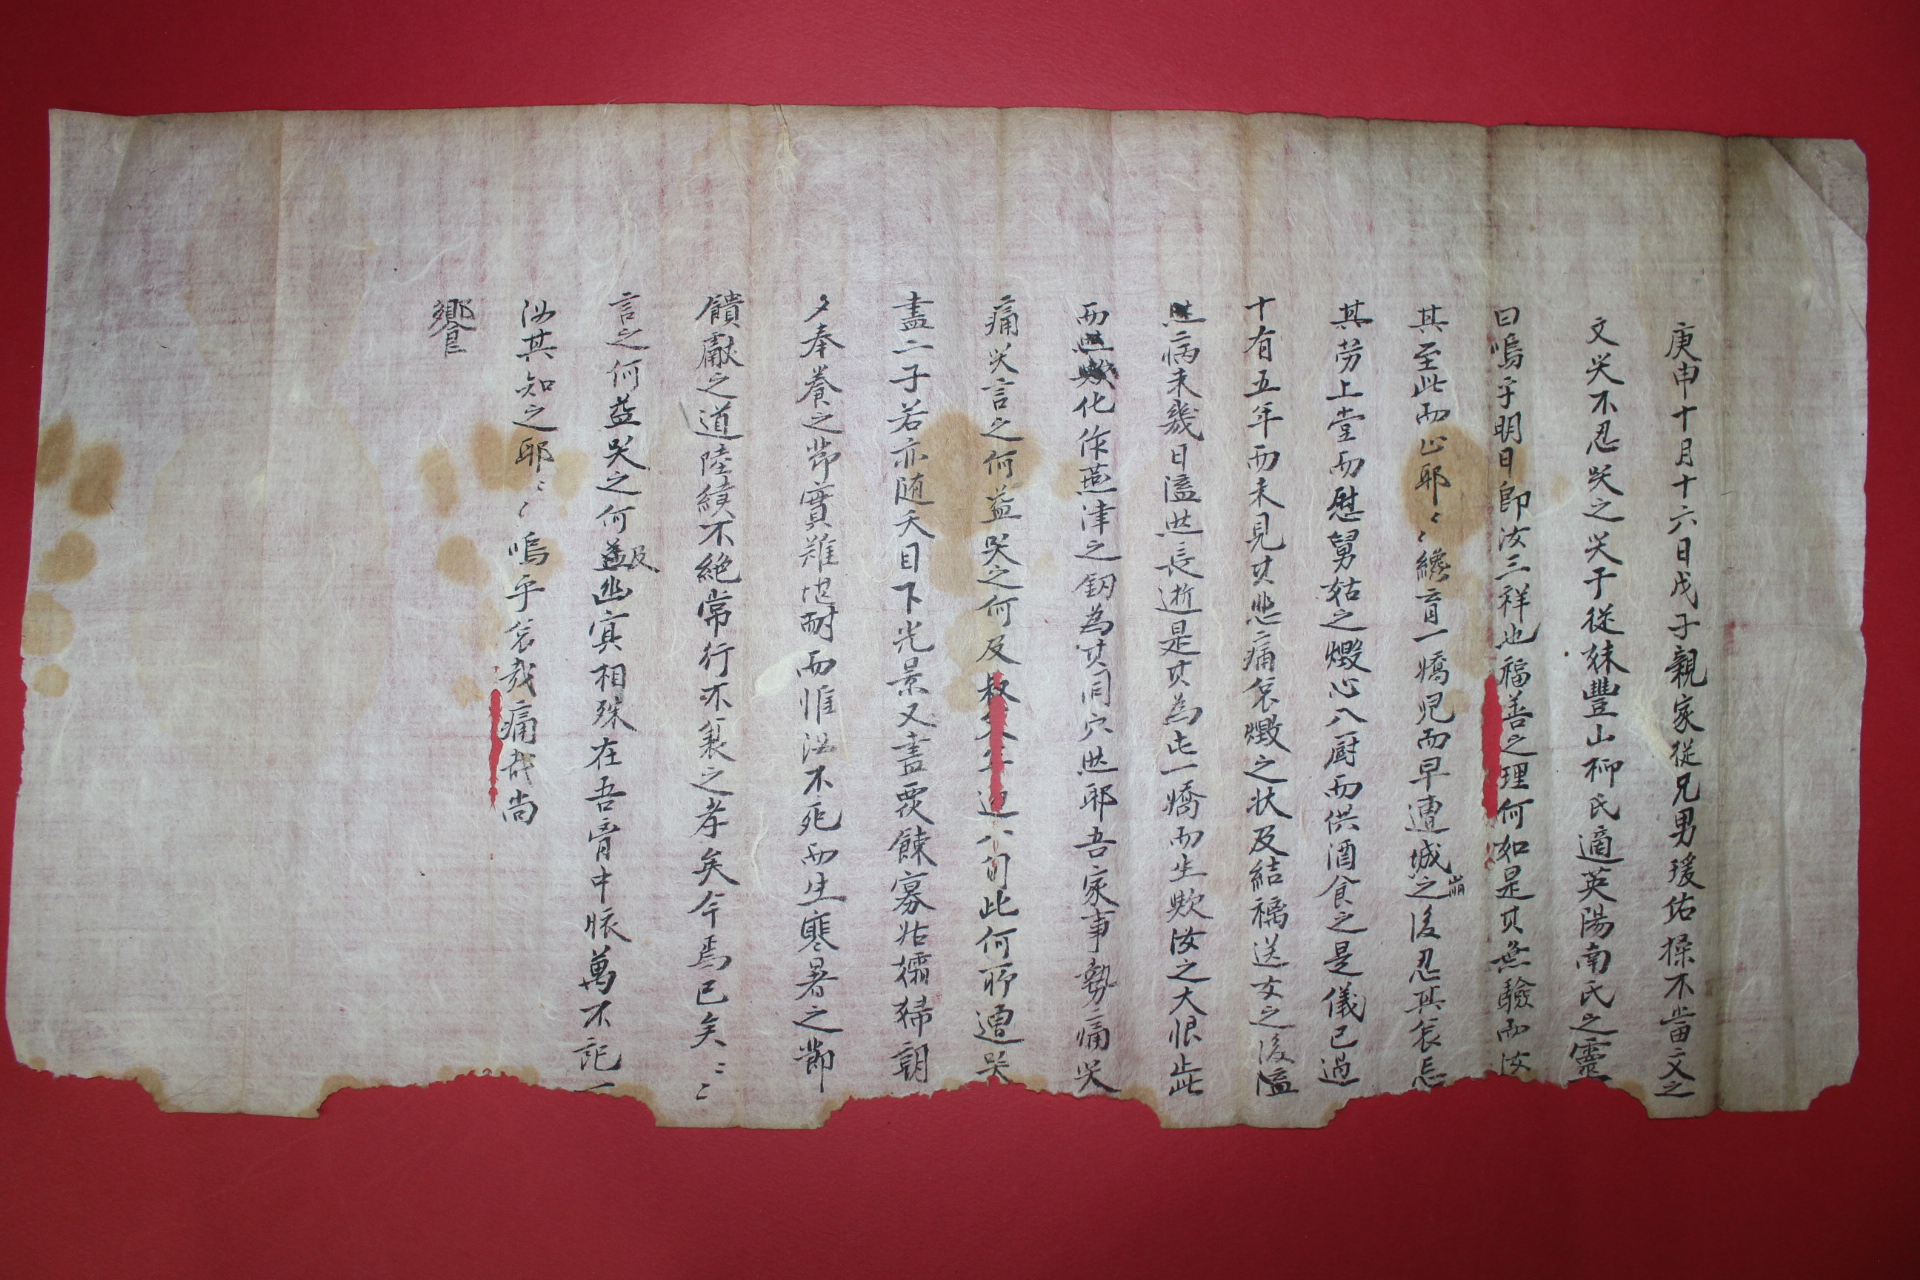 庚申十月十六日戊子親家從兄男瑗佑操不當文之
文哭不忍哭之哭于從妹豐山柳氏適英陽南氏之靈
曰嗚乎明日即汝三祥也福善之理何如是其無驗而汝
其至此而止耶〻〻纔育一嬌児而早遭城崩之後忍其哀忘
其勞上堂而慰舅姑之燬心入厨而供酒食之是儀已過
十有五年而未見其悲痛哀燬之状及結褵送女之後溘
然病未幾日溘然長逝是其為古一嬌而生歟汝之大恨止此
而化作燕津之釰為其同穴然耶吾家事勢痛哭
痛哭言之何益哭之何及叔父年迫八旬此何所遭哭
盡二子若亦随夭目下光景又盡覆餗寡姑孀婦朝
夕奉養之節實難堪耐而惟汝不死而生寒暑之節
饋獻之道陸續不絶常行不製之孝矣今焉已矣〻〻
言之何益哭之何及幽冥相殊在吾胷中賬萬不記一
汝其知之耶〻〻嗚乎哀哉痛哉尚
饗